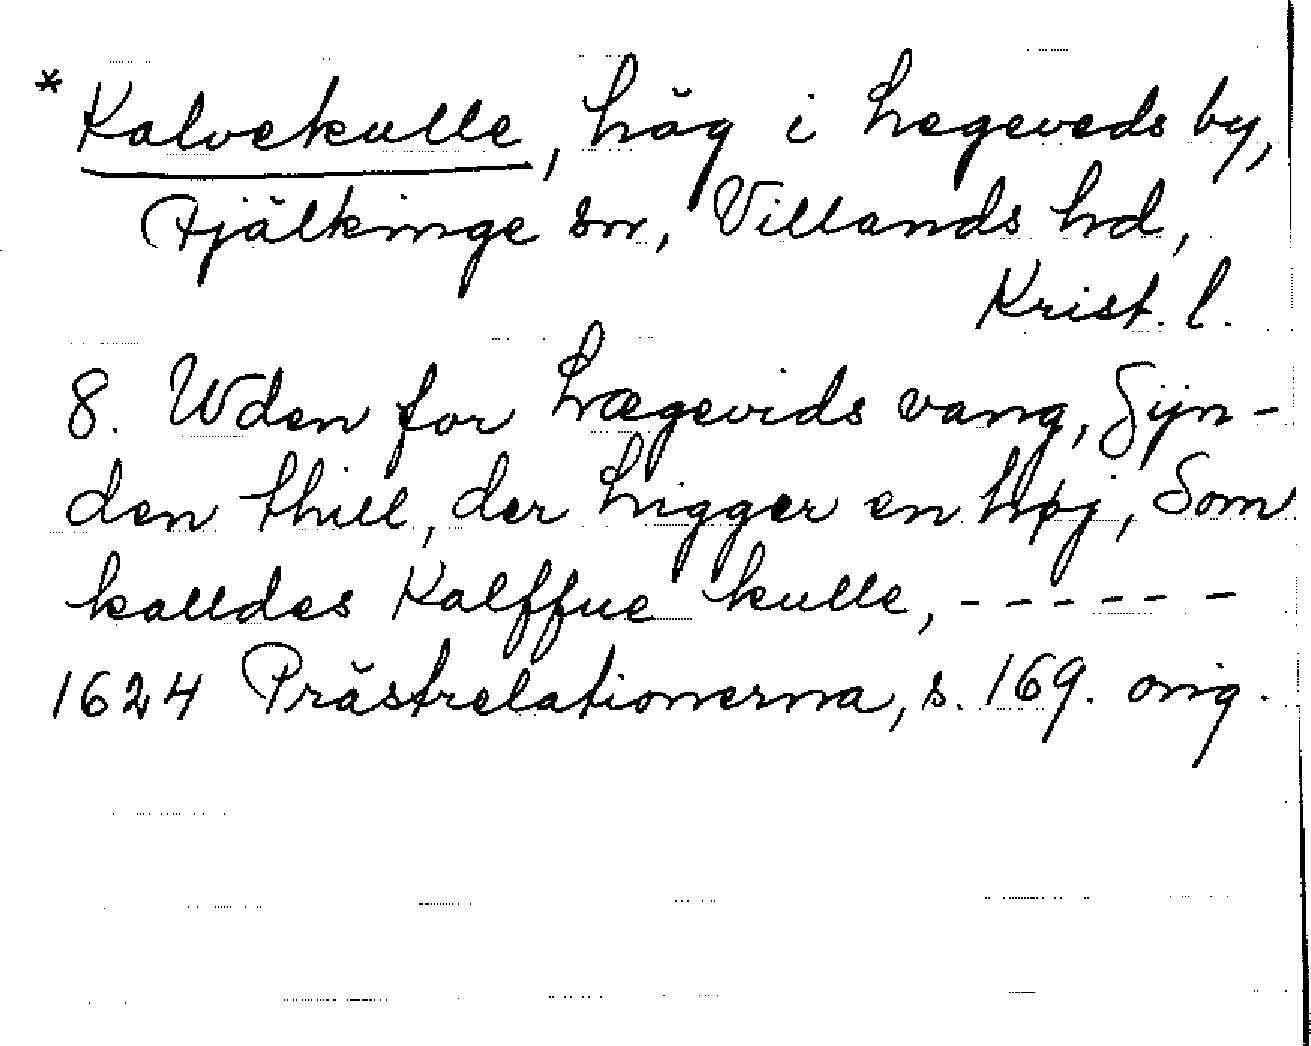 * Kalvekulle, hög i Legeveds by,
Fjälkinge sn, Villands hd,
Krist. l.
8. Wden for Lægevids vang, Sÿn-
den thill, der Ligger en høj, Som
kalldes Kalffue kulle, ------
1624 Prästrelationerna, s. 169. orig.